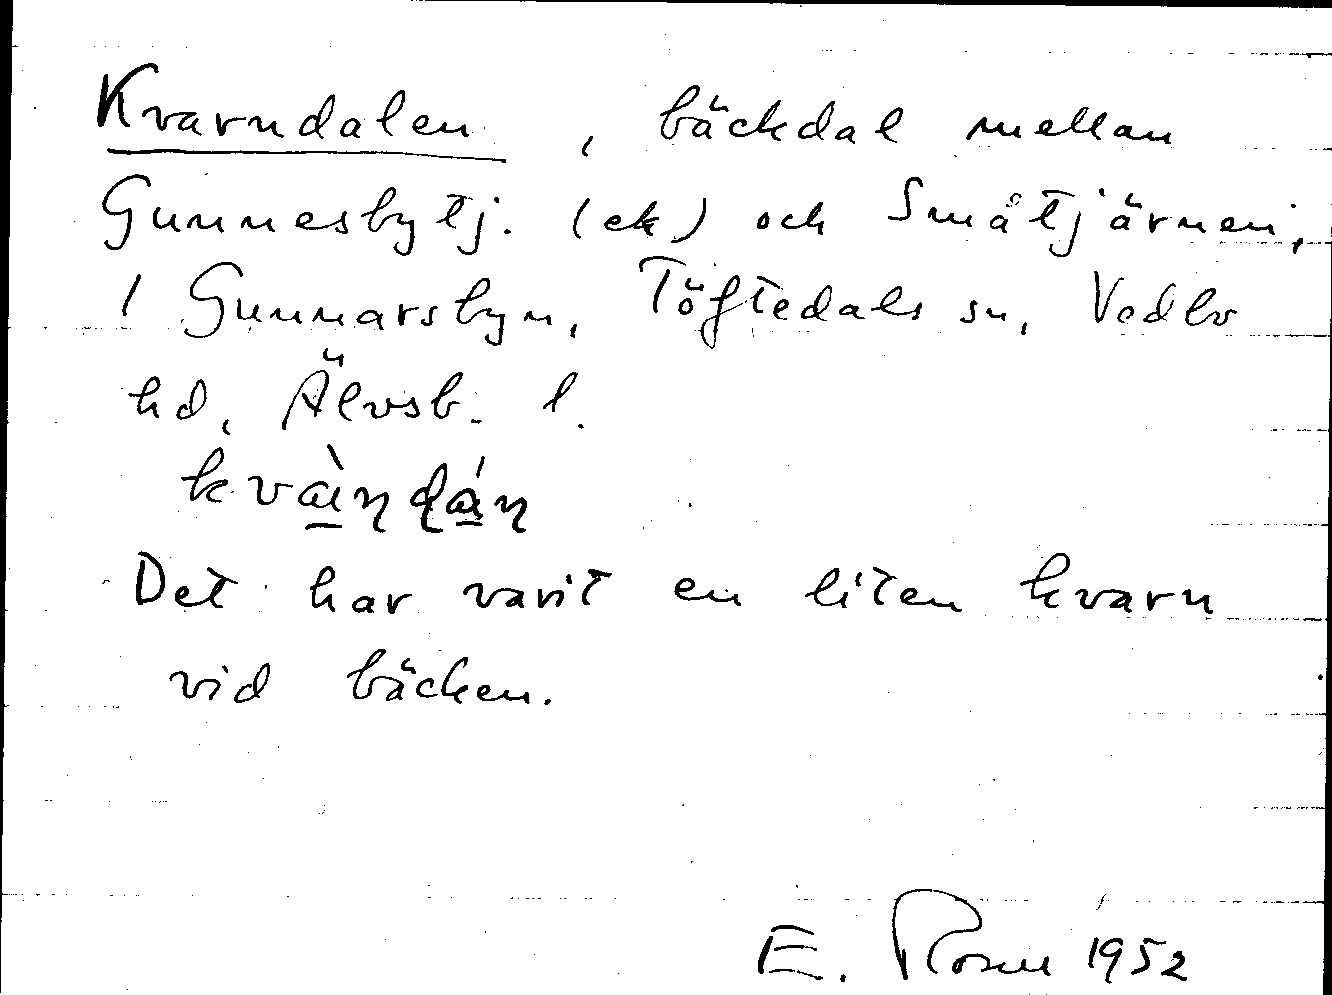 Kvarndalen, bäckdal mellan
Gunnesbytj. (ek) och Småtjärnen,
i Gunnarsbyn, Töftedals sn, Vedbo
hd, Älvsb. l.
Det har varit en liten kvarn
vid bäcken.
E. Rosén 1952